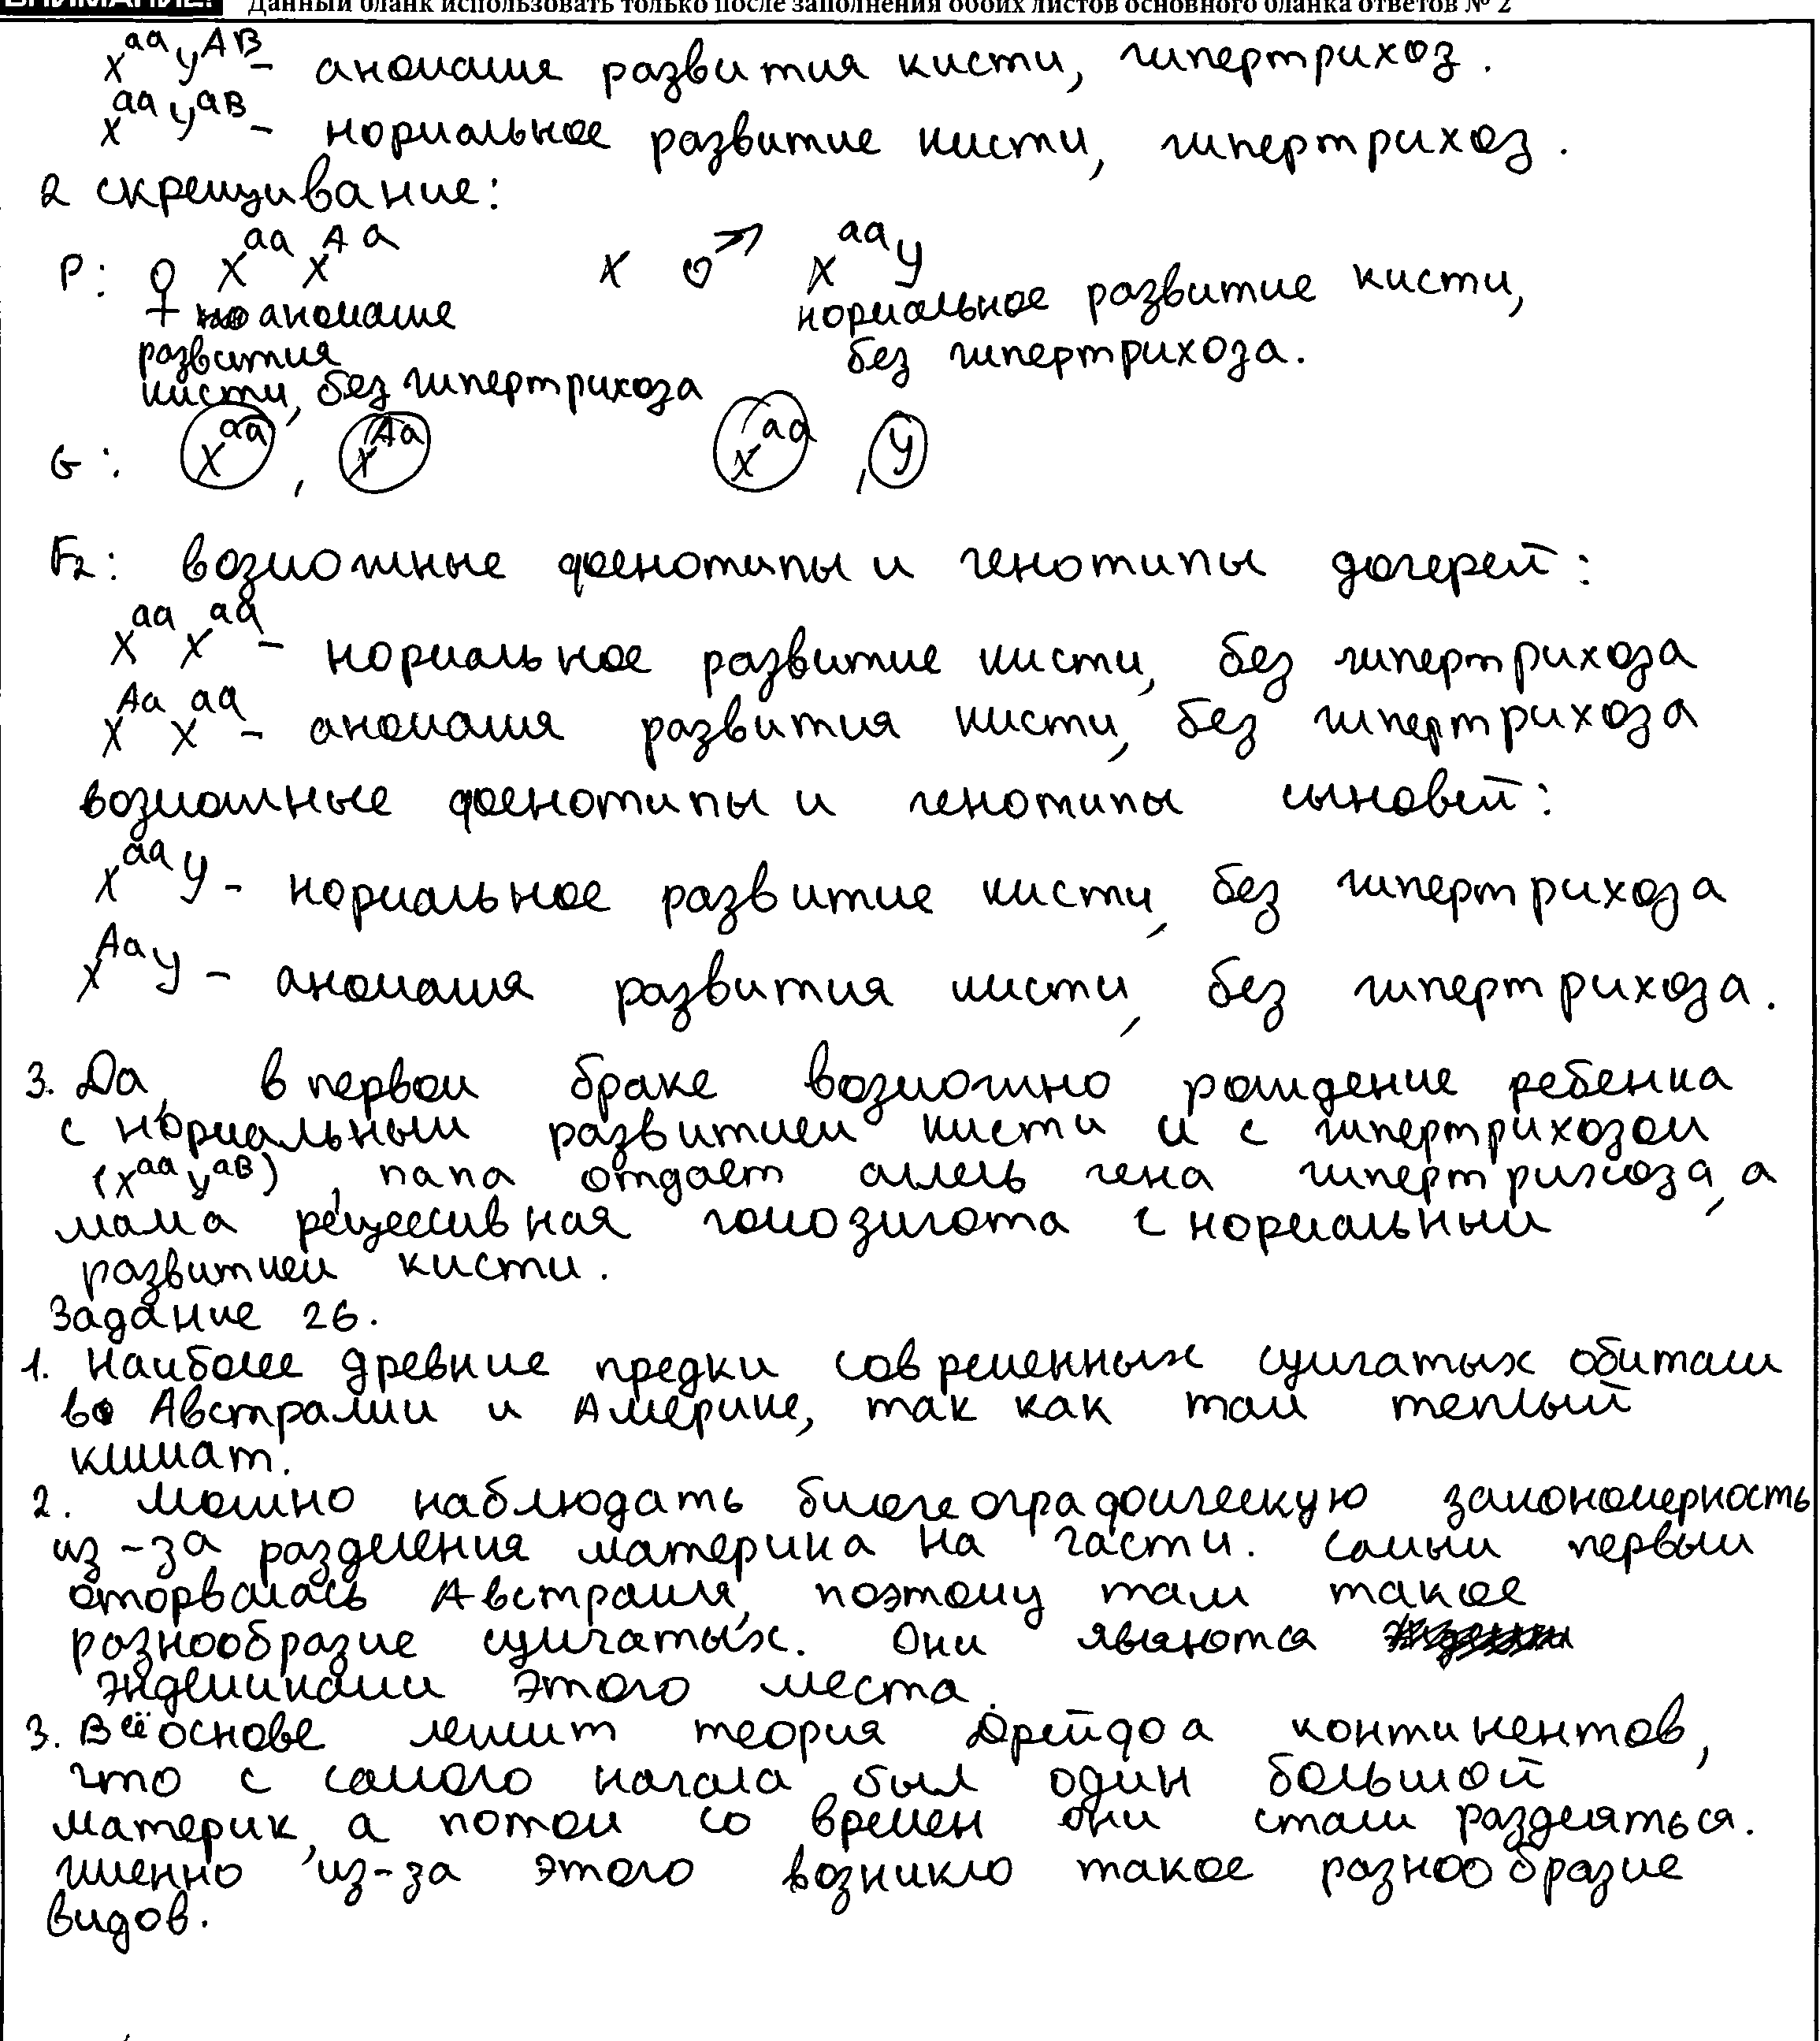 ВНИМАНИЕ! Данный бланк использовать только после заполнения обоих листов основного бланка ответов № 2
X^aa Y^AB - аномалия развития кисти, гипертрихоз.
X^aa Y^aB - нормальное развитие кисти, гипертрихоз.
2 скрещивание:
P: ♀ X^aa X^Aa x ♂ X^aa Y
аномалие нормальное развитие кисти,
развития без гипертрихоза.
кисти, без гипертрихоза
G: X^aa, X^Aa X^aa, Y
F2: возможные фенотипы и генотипы дочерей:
X^aa X^aa - нормальное развитие кисти, без гипертрихоза
X^Aa X^aa - аномалия развития кисти, без гипертрихоза
возможные фенотипы и генотипы сыновей:
X^aa Y - нормальное развитие кисти, без гипертрихоза
X^Aa Y - аномалия развития кисти, без гипертрихоза.
3. Да, в первом браке возможно рождение ребенка
с нормальным развитием кисти и с гипертрихозом
(X^aa Y^aB), папа отдает аллель гена гипертрихоза, а
мама рецессивная гомозигота с нормальным
развитием кисти.
Задание 26.
1. Наиболее древние предки современных сумчатых обитали
в Австралии и Америке, так как там теплый
климат.
2. Можно наблюдать биогеографическую закономерность
из-за разделения материка на части. Самым первым
оторвалась Австралия, поэтому там такое
разнообразие сумчатых. Они являются
эндемиками этого места.
3. В её основе лежит теория Дрейфа континентов,
что с самого начала был один большой
материк, а потом со времен они стали разделяться.
именно из-за этого возникло такое разнообразие
видов.